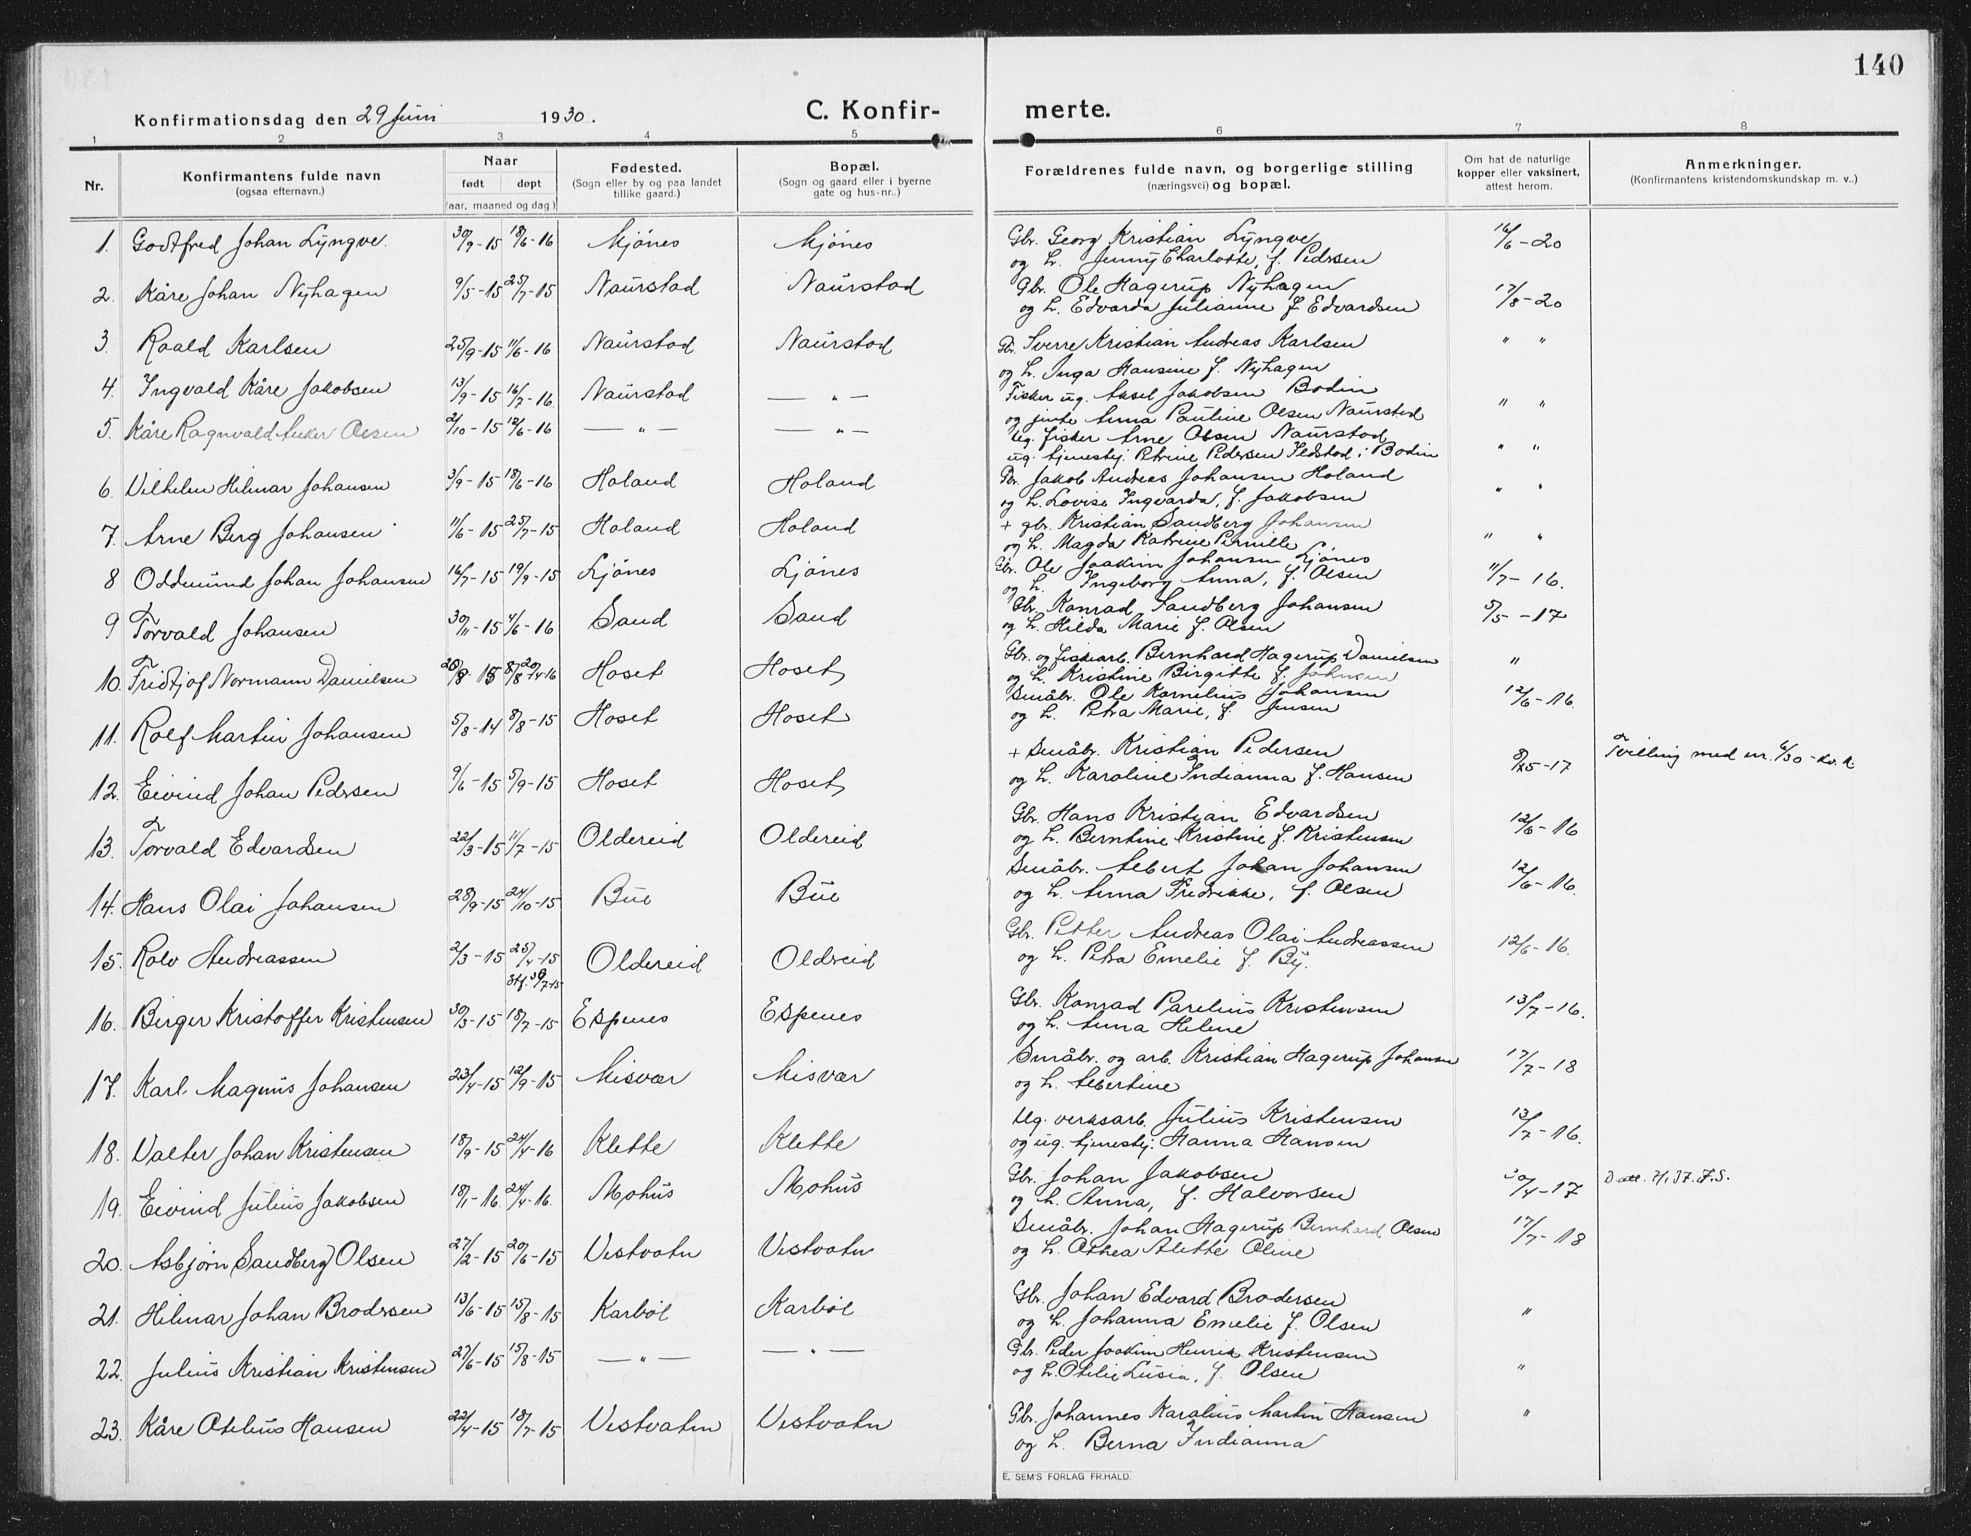 140
Konfirmationsdag den 29 Juni 1930. C. Konfir- merte.
1 2 3 4 5 6 7 8
Nr. Konfirmantens fulde navn (ogsaa efternavn.) Naar født døpt (aar, maaned og dag) Fødested. (Sogn eller by og paa landet tillike gaard.) Bopæl. (Sogn og gaard eller i byerne gate og hus-nr..) Forældrenes fulde navn, og borgerlige stilling (næringsvei) og bopæl. Om hat de naturlige kopper eller vaksinert, attest herom. Anmerkninger. (Konfirmantens kristendomskundskap m. v..)
1. Godtfred Johan Lyngve. 30/9-15 18/6-16 Mjónes Mjónes Gbr. Georg Kristian Lyngve 16/6-20
og h. Jenny Charlotte, f. Pedersen
2. Kåre Johan Nyhagen 9/5-15 25/7-15 Naurstad Naurstad Gbr. Ole Hagerup Nyhagen 17/8-20
og h. Edvarda Julianne f. Edvardsen
3. Roald Karlsen 25/9-15 11/6-16 Naurstad Naurstad Gbr. Sverre Kristian Andreas Karlsen " "
og h. Inga Hansine f. Nyhagen
4. Ingvald Kåre Jakobsen 13/9-15 16/7-16. Naurstad — " — Fisker ug. Aksel Jakobsen Bodin " "
og jente Anna Pauline Olsen Naurstad
5. Kåre Ragnvald Anker Olsen 2/10-15 12/6-16 — " — — " — Ug. fisker Arne Olsen Naurstad " "
ug. tjenestej. Petrine Pedersen Ildstad i Bodin
6. Vilhelm Hilmar Johansen 3/9-15 18/6-16 Holand Holand Gbr. Jakob Andreas Johansen Holand " "
og h. Lovise Ingvarda, f. Jakobsen
7. Arne Berg Johansen 11/6-15 25/7-15 Holand Holand + gbr. Kristian Sandberg Johansen " "
og h. Magda Katrine Pernille
8 Oddmund Johan Johansen 16/7-15 19/9-15 Ljónes Ljónes Gbr. Ole Joakim Johansen Ljónes 11/7-16.
og h. Ingeborg Anna, f. Olsen
9 Torvald Johansen 30/11-15 4/6-16 Sand Sand Gbr. Konrad Sandberg Johansen 5/5-17
og h. Hilda Marie f. Olsen
10. Fridtjof Normann Danielsen 8/8 20/4-16 Hoset Hoset Gbr. og fiskarb. Bernhard Hagerup Danielsen "
og h. Kristine Birgitte f. Johnsen
11. Rolf Martin Johansen 5/8-14 8/8-15 Hoset Hoset Småbr. Ole Kornelius Johansen 12/6-16.
og h. Petra Marie, f. Jensen
12. Eivind Johan Pedersen 9/6-15 5/9-15 Hoset Hoset + Småbr. Kristian Pedersen Tvilling med nr. 6/30 - kv. k
og h. Karoline Indianna f. Hansen
13. Torvald Edvardsen 22/3-15 11/7-15 Oldereid Oldereid Gbr. Hans Kristian Edvardsen 12/6-16
og h. Berntine Kristine f. Kristensen
14. Hans Olai Johansen 28/9-15 24/10-15 Bue Bue Småbr. Albert Johan Johansen 12/6-16.
og h. Anna Fredrikke, f. Olsen
15. Rolv Andreassen 2/3-15 25/4-15 Oldereid Oldreid Gbr. Petter Andreas Olai Andreassen 12/6-16.
og h. Petra Emelie f. By.
16. Birger Kristoffer Kristensen 30/3-15 18/7-15 Espenes Espenes Gbr. Konrad Parelius Kristensen 13/7-16.
og h. Anna Helene
17. Karl Magnus Johansen 23/4-15 12/9-15 Misvær Misvær Småbr. og arb. Kristian Hagerup Johansen 17/7-18
og h. Albertine
18. Valter Johan Kristensen 18/9-15 24/4-16 Klette Klette Ug. verksarb. Julius Kristensen 13/7-16.
og ug. tjenestej. Hanna Hansen
19. Eivind Julius Jakobsen 18/1-16. 24/4-16. Mohus Mohus Gbr. Johan Jakobsen 30/4-17 D att. 2/1 37. F.S.
og h. Anna, f. Halvorsen
20. Asbjørn Sandberg Olsen 27/2-15 20/6-15 Vestvatn Vestvatn Småbr. Johan Hagerup Bernhard Olsen 17/7-18
og h. Othea Alette Oline
21. Hilmar Johan Brodersen 13/6-15 15/8-15 Karbøl Karbøl Gbr. Johan Edvard Brodersen "
og h. Johanna Emelie f. Olsen
22. Julius Kristian Kristensen 27/6-15 15/8-15 — " — — " — Gbr. Peder Joakim Henrik Kristensen "
og h. Otelie Lusia, f. Olsen
23. Kåre Otelius Hansen 22/4-15 18/7-15 Vestvatn Vestvatn Gbr. Johannes Karolius Martin Hansen "
og h. Berna Indianna
E. SEM'S FORLAG FR.HALD.